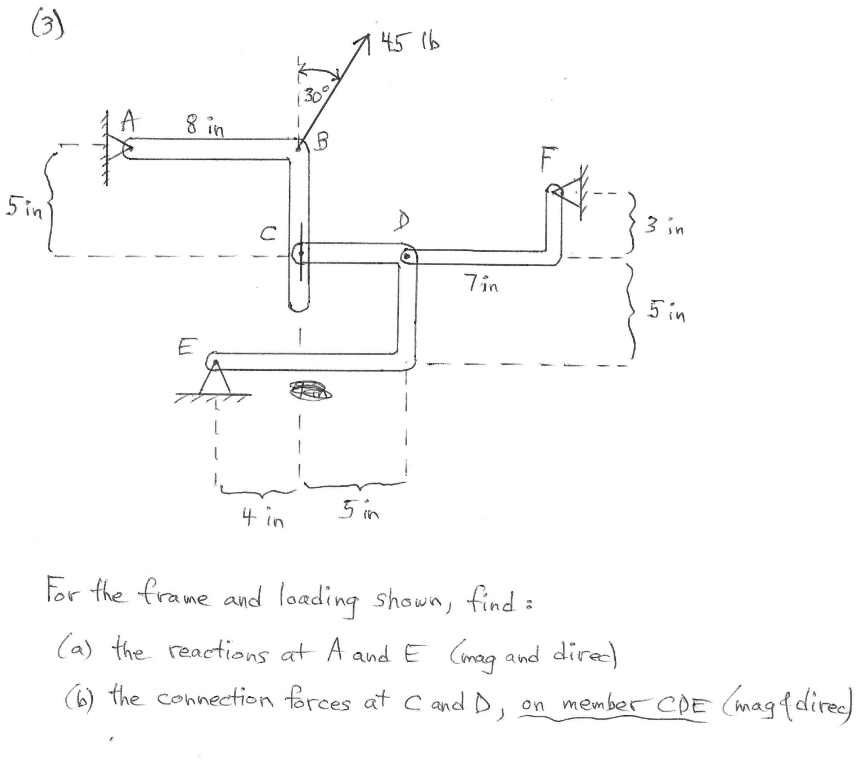 (3)
45 lb
30°
A
8 in
B
F
5 in
C
D
3 in
7 in
5 in
E
4 in
5 in
For the frame and loading shown, find :
(a) the reactions at A and E (mag and direc)
(b) the connection forces at C and D, on member CDE (mag & direc)